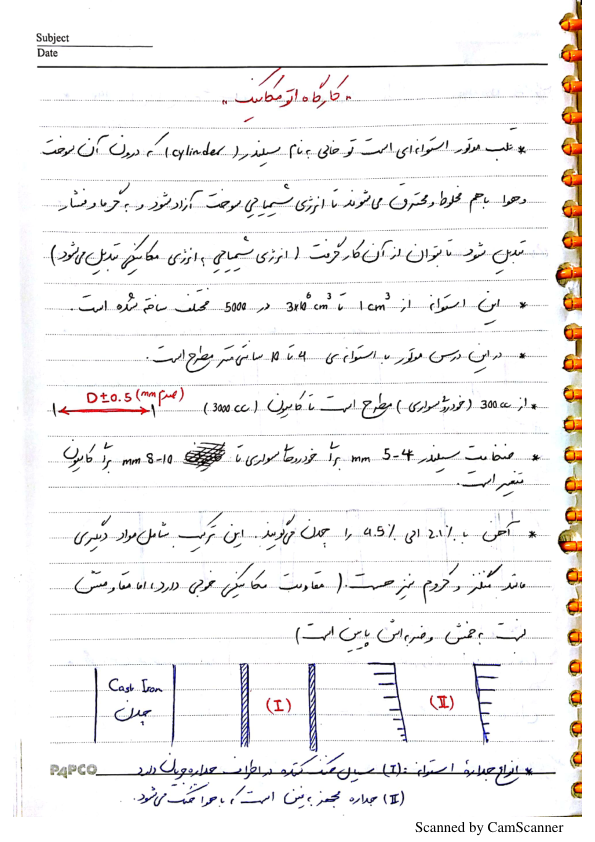 Subject
Date
"کارگاه اتومکانیک"
* قلب موتور استوانه‌ای است تو خالی به نام سیلندر (cylinder) که درون آن سوخت
وهوا باهم مخلوط و محترق می‌شوند تا انرژی شیمیایی سوخت آزاد شود و به گرما و فشار
تبدیل شود تا بتوان از آن کار گرفت (انرژی شیمیایی به انرژی مکانیکی تبدیل می‌شود)
* این استوانه از 1 cm³ تا 3x10⁶ cm³ در 5000 مختلف ساخته شده است.
* در این درس موتور با استوانه‌ی 4 تا 10 سانتی‌متر مطرح است.
* از 300 cc (خودرو سواری) مطرح است تا کامیون (3000 cc)
D±0.5 (mm صدم)
* ضخامت سیلندر 4-5 mm برای خودروها سواری تا 8-10 mm برای کامیون
متغیر است.
* آهن با 2.1% الی 4.5% را چدن می‌گویند. این ترکیب شامل مواد دیگری
مانند منگنز و کروم نیز هست. (مقاومت مکانیکی خوبی دارد، اما مقاومتش
نسبت به خمش و ضربه‌اش پایین است)
Cast Iron
چدن
(I)
(II)
* انواع جداره استوانه: (I) سیال خنک کننده در اطراف جداره جریان دارد
(II) جداره مجهز به فین است که با هوا خنک می‌شود.
PAPCO
Scanned by CamScanner